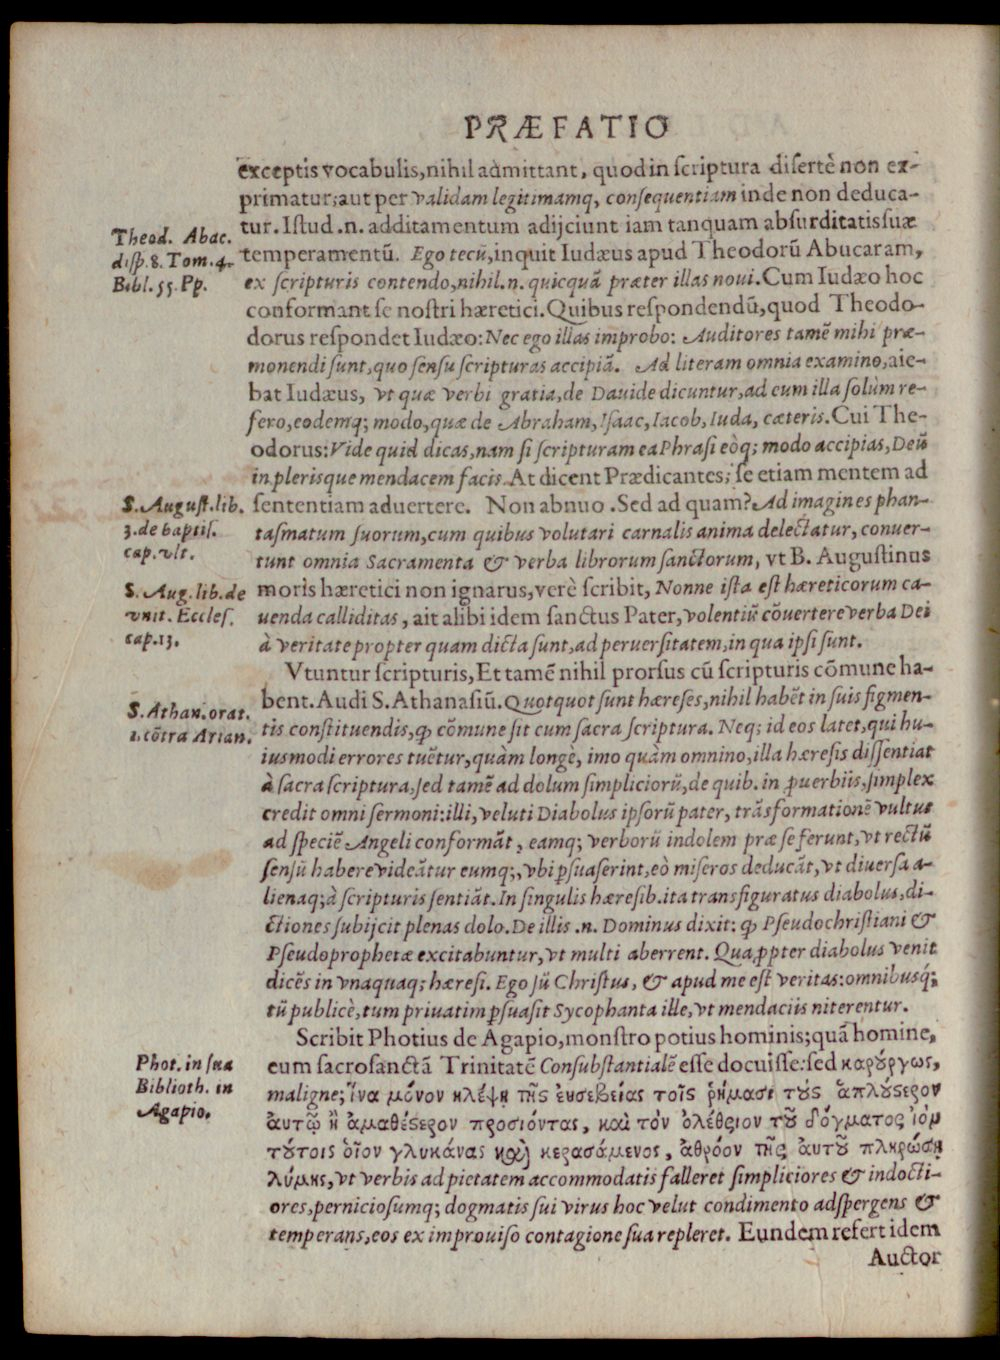 PRÆFATIO
exceptis vocabulis, nihil admittant, quod in scriptura disertè non ex-
primatur; aut per validam legitimamq; consequentiam inde non deduca-
tur. Istud .n. additamentum adijciunt iam tanquam absurditatis suæ
Theod. Abac.
disp. 8. Tom. 4.
Bibl. SS. Pp.
temperamentū. Ego tecū, inquit Iudæus apud Theodorū Abucaram,
ex scripturis contendo, nihil .n. quicquā præter illas noui. Cum Iudæo hoc
conformant se nostri hæretici. Quibus respondendū, quod Theodo-
dorus respondet Iudæo: Nec ego illas improbo: Auditores tamē mihi præ-
monendi sunt, quo sensu scripturas accipiā. Ad literam omnia examino, aie-
bat Iudæus, vt quæ verbi gratia, de Dauide dicuntur, ad eum illa solùm re-
fero, eodemq; modo, quæ de Abraham, Isaac, Iacob, Iuda, cæteris. Cui The-
odorus: Vide quid dicas, nam si scripturam ea Phrasi eòq; modo accipias, Deū
in plerisque mendacem facis. At dicent Prædicantes; se etiam mentem ad
S. August. lib.
3. de baptis.
cap. vlt.
sententiam aduertere. Non abnuo. Sed ad quam? Ad imagines phan-
tasmatum suorum, cum quibus volutari carnalis anima delectatur, conuer-
tunt omnia Sacramenta & verba librorum sanctorum, vt B. Augustinus
S. Aug. lib. de
vnit. Eccles.
cap. 13.
moris hæretici non ignarus, verè scribit, Nonne ista est hæreticorum ca-
uenda calliditas, ait alibi idem sanctus Pater, volentiū cōuertere verba Dei
à veritate propter quam dicta sunt, ad peruersitatem, in qua ipsi sunt.
Vtuntur scripturis, Et tamē nihil prorsus cū scripturis cōmune ha-
bent. Audi S. Athanasiū. Quotquot sunt hæreses, nihil habēt in suis figmen-
S. Athan. orat.
1. cōtra Arian.
tis constituendis, ꝙ cōmune sit cum sacra scriptura. Neq; id eos latet, qui hu-
iusmodi errores tuētur, quàm longè, imo quàm omnino, illa hæresis dissentiat
à sacra scriptura, sed tamē ad dolum simpliciorū, de quib. in ꝓuerbiis, simplex
credit omni sermoni: illi, veluti Diabolus ipsorū pater, trāsformationē vultus
ad speciē Angeli conformāt, eamq; verborū indolem præ se ferunt, vt rectū
sensū habere videātur eumq;, vbi ꝑsuaserint, eò miseros deducāt, vt diuersa a-
lienaq; à scripturis sentiāt. In singulis hæresib. ita transfiguratus diabolus, di-
ctiones subijcit plenas dolo. De illis .n. Dominus dixit: ꝙ Pseudochristiani &
Pseudoprophetæ excitabuntur, vt multi aberrent. Quaꝓpter diabolus venit
dicēs in vnaquaq; hæresi. Ego sū Christus, & apud me est veritas: omnibusq́;
tū publicè, tum priuatim ꝑsuasit Sycophanta ille, vt mendaciis niterentur.
Scribit Photius de Agapio, monstro potius hominis; quā homine,
Phot. in sua
Biblioth. in
Agapio.
eum sacrosanctā Trinitatē Consubstantialē esse docuisse: sed κακούργως,
maligne; ἵνα μόνον κλέψῃ τῆς εὐσεβείας τοῖς ῥήμασι τοὺς ἁπλούστερον
αὐτῷ ἢ ἀμαθέστερον προσιόντας, καὶ τὸν ὀλέθριον τοῦ δόγματος ἰὸν
τούτοις οἷον γλυκάνας καὶ κερασάμενος, ἀθρόον τῆς αὐτοῦ πληρώσῃ
λύμης, vt verbis ad pietatem accommodatis falleret simpliciores & indocti-
ores, perniciosumq; dogmatis sui virus hoc velut condimento adspergens &
temperans, eos ex improuiso contagione sua repleret. Eundem refert idem
Auctor